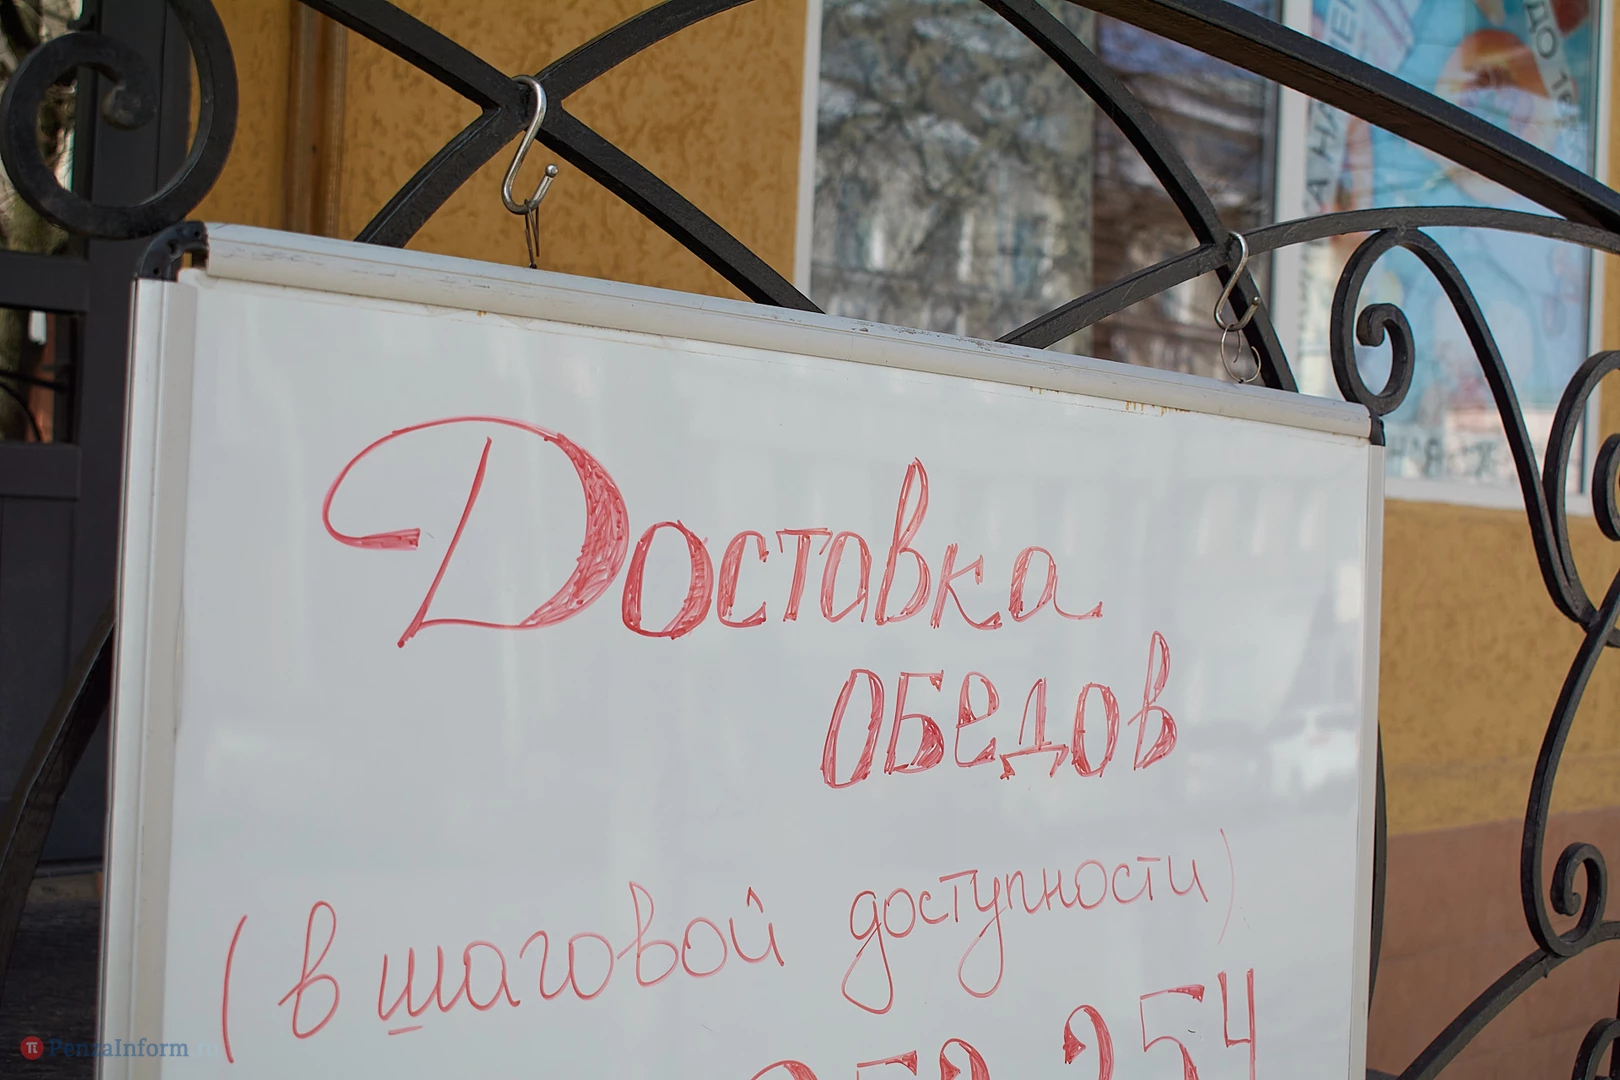 Доставка
обедов
(в шаговой доступности)
254
PenzaInform